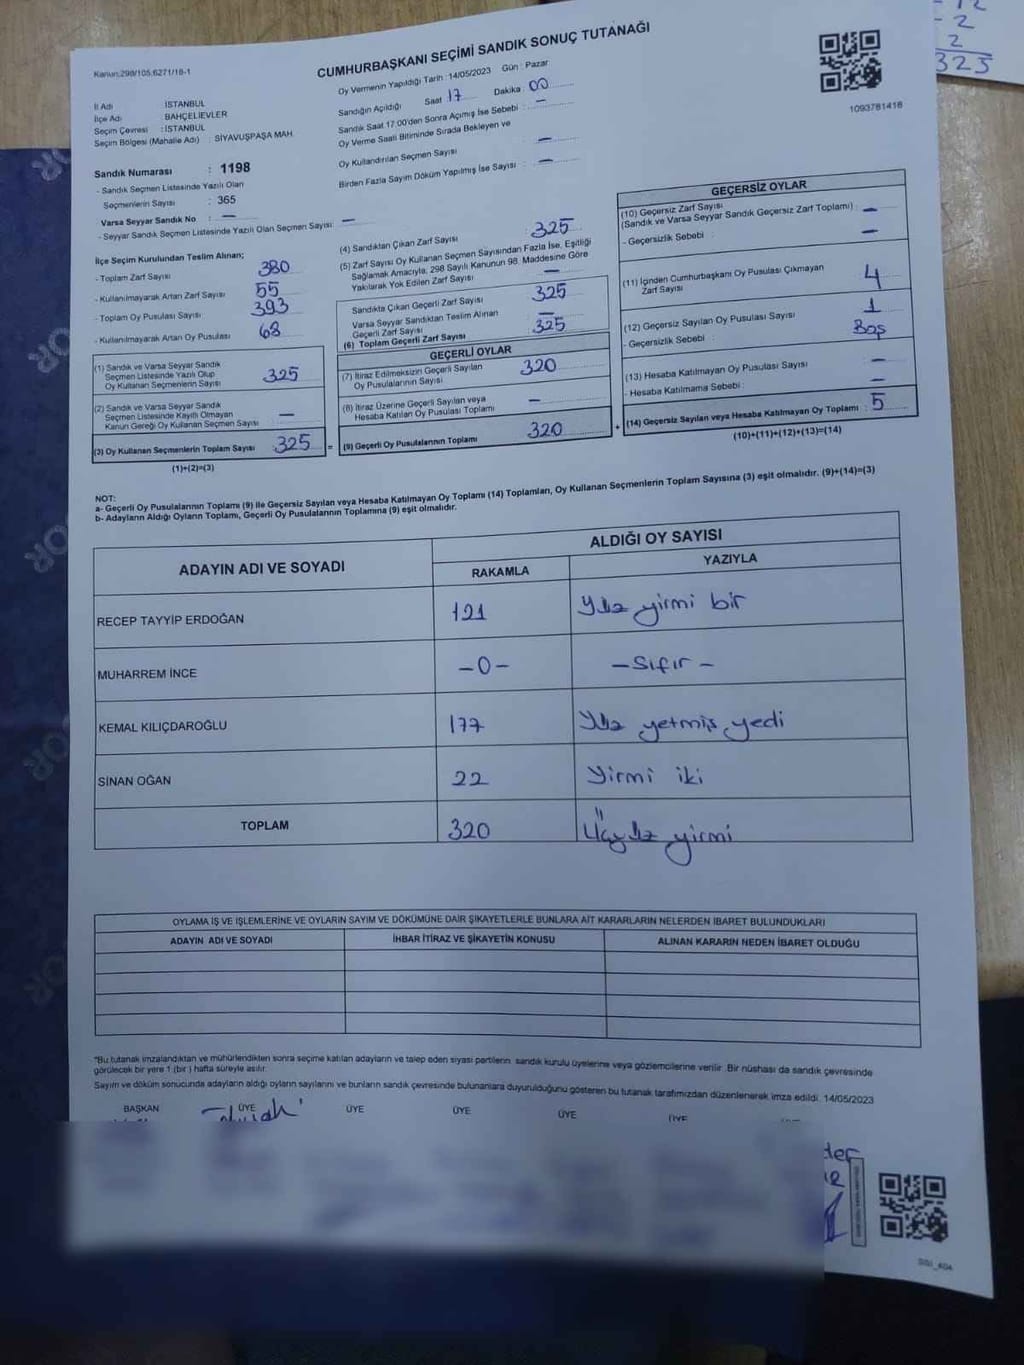 - 12
- 2
2
325
Kanun:298/105,6271/18-1
CUMHURBAŞKANI SEÇİMİ SANDIK SONUÇ TUTANAĞI
1093781418
İl Adı : İSTANBUL
İlçe Adı : BAHÇELİEVLER
Seçim Çevresi : İSTANBUL
Seçim Bölgesi (Mahalle Adı) : SİYAVUŞPAŞA MAH.
Sandık Numarası : 1198
- Sandık Seçmen Listesinde Yazılı Olan
Seçmenlerin Sayısı : 365
Varsa Seyyar Sandık No : —
- Seyyar Sandık Seçmen Listesinde Yazılı Olan Seçmen Sayısı: —
Oy Vermenin Yapıldığı Tarih : 14/05/2023 Gün : Pazar
Sandığın Açıldığı Saat 17 Dakika 00
Sandık Saat 17.00'den Sonra Açılmış İse Sebebi : —
Oy Verme Saati Bitiminde Sırada Bekleyen ve
Oy Kullandırılan Seçmen Sayısı —
Birden Fazla Sayım Döküm Yapılmış İse Sayısı : —
İlçe Seçim Kurulundan Teslim Alınan;
- Toplam Zarf Sayısı 380
- Kullanılmayarak Artan Zarf Sayısı 55
- Toplam Oy Pusulası Sayısı 393
- Kullanılmayarak Artan Oy Pusulası 68
(1) Sandık ve Varsa Seyyar Sandık
Seçmen Listesinde Yazılı Olup
Oy Kullanan Seçmenlerin Sayısı 325
(2) Sandık ve Varsa Seyyar Sandık
Seçmen Listesinde Kayıtlı Olmayan
Kanun Gereği Oy Kullanan Seçmen Sayısı —
(3) Oy Kullanan Seçmenlerin Toplam Sayısı 325 =
(1)+(2)=(3)
(4) Sandıktan Çıkan Zarf Sayısı 325
(5) Zarf Sayısı Oy Kullanan Seçmen Sayısından Fazla İse, Eşitliği
Sağlamak Amacıyla, 298 Sayılı Kanunun 98. Maddesine Göre
Yakılarak Yok Edilen Zarf Sayısı —
Sandıkta Çıkan Geçerli Zarf Sayısı 325
Varsa Seyyar Sandıktan Teslim Alınan
Geçerli Zarf Sayısı —
(6) Toplam Geçerli Zarf Sayısı 325
GEÇERLİ OYLAR
(7) İtiraz Edilmeksizin Geçerli Sayılan
Oy Pusulalarının Sayısı 320
(8) İtiraz Üzerine Geçerli Sayılan veya
Hesaba Katılan Oy Pusulası Toplamı —
(9) Geçerli Oy Pusulalarının Toplamı 320 +
GEÇERSİZ OYLAR
(10) Geçersiz Zarf Sayısı
(Sandık ve Varsa Seyyar Sandık Geçersiz Zarf Toplamı) : —
- Geçersizlik Sebebi : —
(11) İçinden Cumhurbaşkanı Oy Pusulası Çıkmayan
Zarf Sayısı 4
(12) Geçersiz Sayılan Oy Pusulası Sayısı 1
- Geçersizlik Sebebi : Boş
(13) Hesaba Katılmayan Oy Pusulası Sayısı —
- Hesaba Katılmama Sebebi : —
(14) Geçersiz Sayılan veya Hesaba Katılmayan Oy Toplamı : 5
(10)+(11)+(12)+(13)=(14)
NOT:
a- Geçerli Oy Pusulalarının Toplamı (9) ile Geçersiz Sayılan veya Hesaba Katılmayan Oy Toplamı (14) Toplamları, Oy Kullanan Seçmenlerin Toplam Sayısına (3) eşit olmalıdır. (9)+(14)=(3)
b- Adayların Aldığı Oyların Toplamı, Geçerli Oy Pusulalarının Toplamına (9) eşit olmalıdır.
ADAYIN ADI VE SOYADI
ALDIĞI OY SAYISI
RAKAMLA YAZIYLA
RECEP TAYYİP ERDOĞAN 121 Yüz yirmi bir
MUHARREM İNCE -0- -Sıfır-
KEMAL KILIÇDAROĞLU 177 Yüz yetmiş yedi
SİNAN OĞAN 22 Yirmi iki
TOPLAM 320 Üçyüz yirmi
OYLAMA İŞ VE İŞLEMLERİNE VE OYLARIN SAYIM VE DÖKÜMÜNE DAİR ŞİKAYETLERLE BUNLARA AİT KARARLARIN NELERDEN İBARET BULUNDUKLARI
ADAYIN ADI VE SOYADI İHBAR İTİRAZ VE ŞİKAYETİN KONUSU ALINAN KARARIN NEDEN İBARET OLDUĞU
*Bu tutanak imzalandıktan ve mühürlendikten sonra seçime katılan adayların ve talep eden siyasi partilerin sandık kurulu üyelerine veya gözlemcilerine verilir. Bir nüshası da sandık çevresinde
görülecek bir yere 1 (bir) hafta süreyle asılır.
Sayım ve döküm sonucunda adayların aldığı oyların sayılarını ve bunların sandık çevresinde bulunanlara duyurulduğunu gösteren bu tutanak tarafımızdan düzenlenerek imza edildi. 14/05/2023
BAŞKAN ÜYE ÜYE ÜYE ÜYE ÜYE